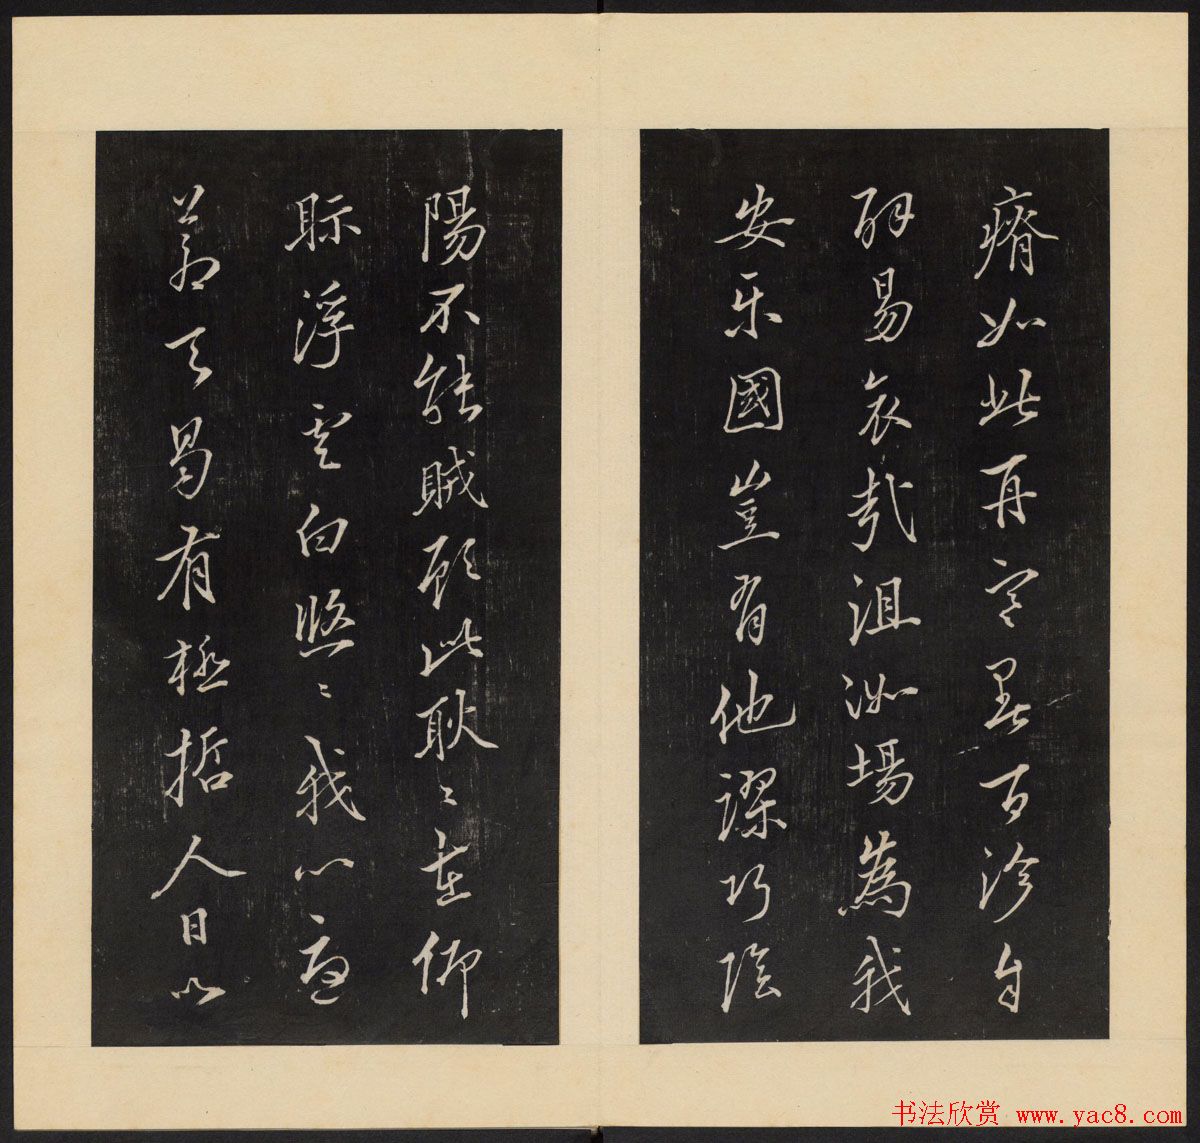 瘠如此再寒暑百沴自
辟易哀哉沮洳場為我
安乐國豈有他謬巧陰
陽不能賊顧此耿〻在仰
眎浮雲白悠〻我心憂
蒼天曷有極哲人日以
书法欣赏 www.yac8.com